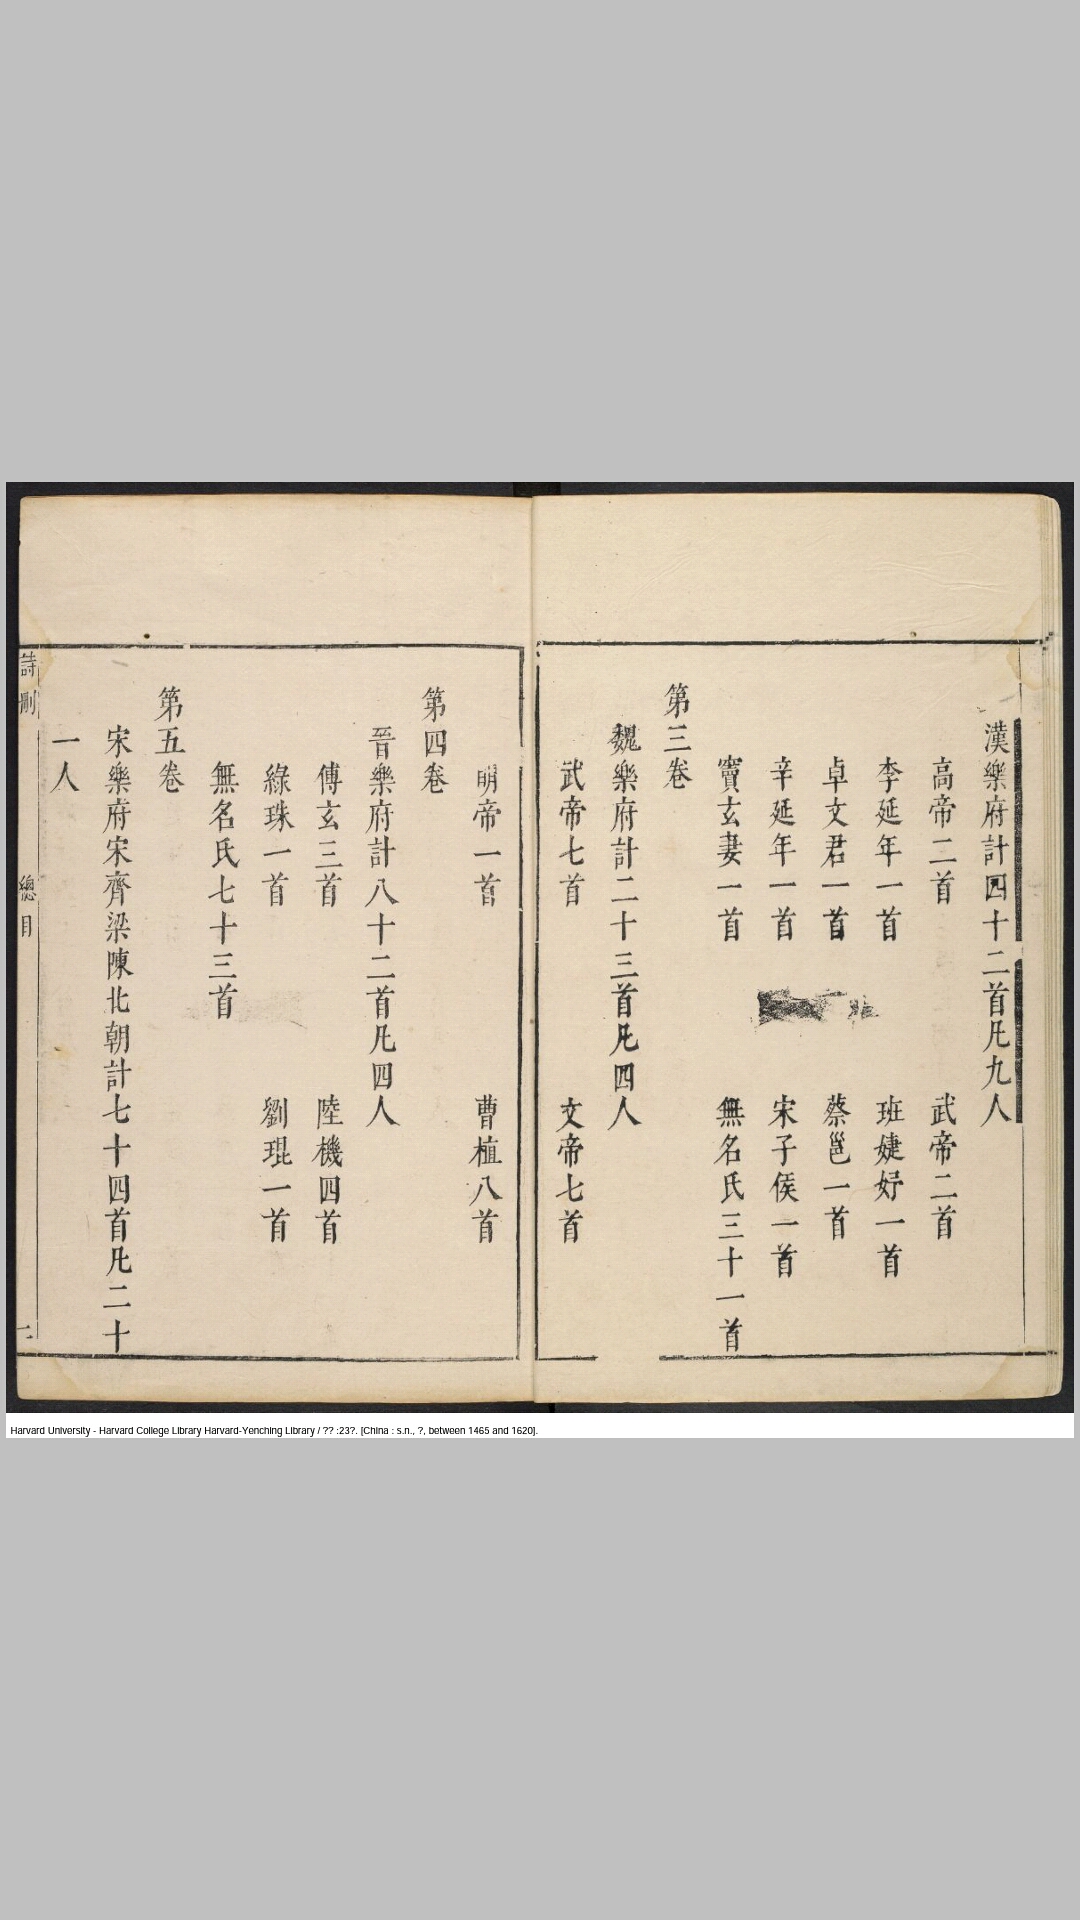 漢樂府計四十二首凡九人
高帝二首　武帝二首
李延年一首　班婕妤一首
卓文君一首　蔡邕一首
辛延年一首　宋子侯一首
竇玄妻一首　無名氏三十一首
第三卷
魏樂府計二十三首凡四人
武帝七首　文帝七首
明帝一首　曹植八首
第四卷
晉樂府計八十二首凡四人
傅玄三首　陸機四首
綠珠一首　劉琨一首
無名氏七十三首
第五卷
宋樂府宋齊梁陳北朝計七十四首凡二十
一人
詩刪　總目
Harvard University - Harvard College Library Harvard-Yenching Library / ?? :23?. [China : s.n., ?, between 1465 and 1620].